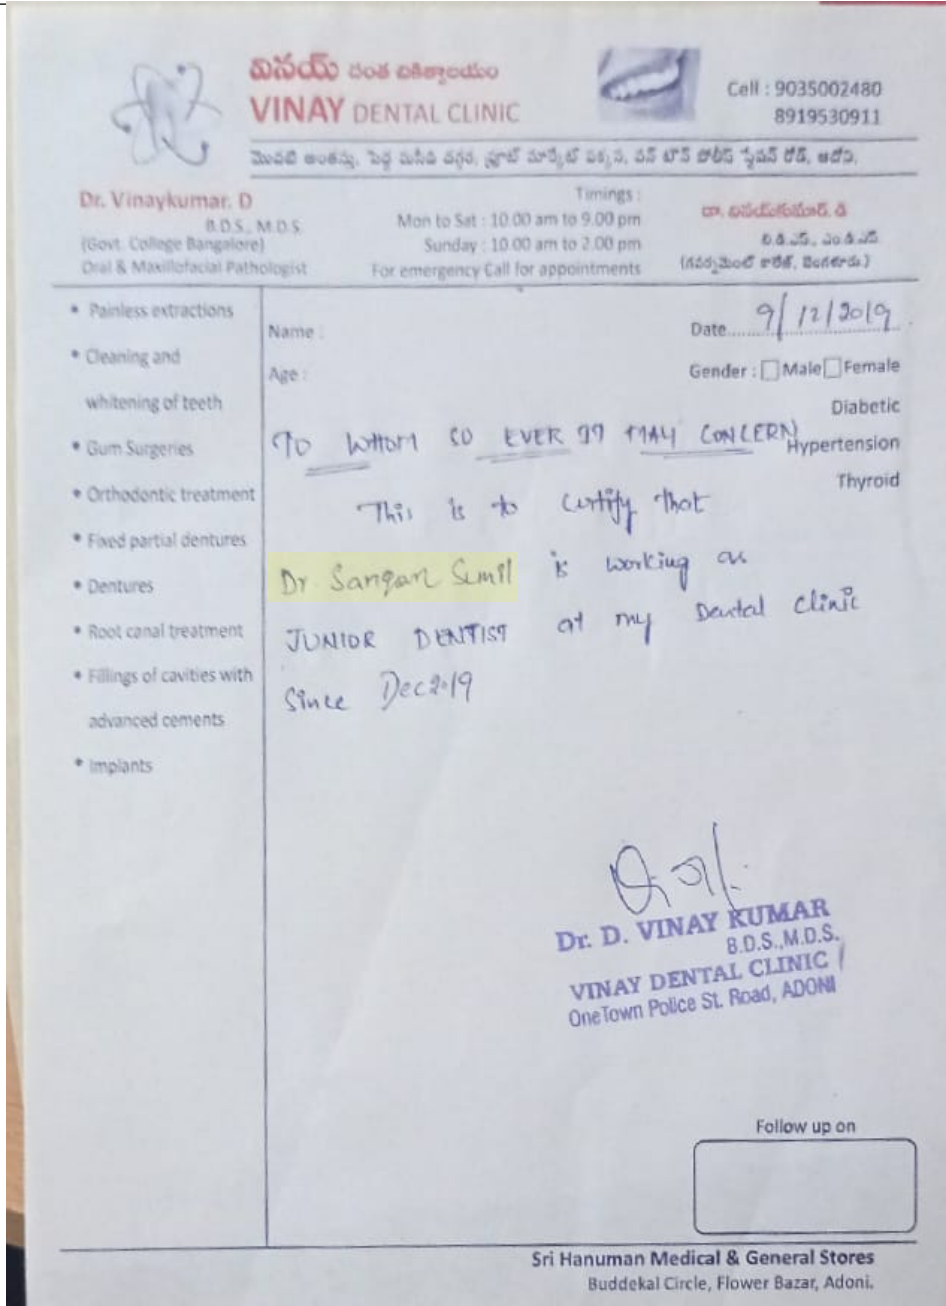 వినయ్ దంత చికిత్సాలయం
VINAY DENTAL CLINIC
Cell : 9035002480
8919530911
మొదటి అంతస్తు, పెద్ద మసీదు దగ్గర, ఫ్రూట్ మార్కెట్ పక్కన, వన్ టౌన్ పోలీస్ స్టేషన్ రోడ్, ఆదోని.
Dr. Vinaykumar. D
B.D.S., M.D.S.
(Govt. College Bangalore)
Oral & Maxillofacial Pathologist
Timings :
Mon to Sat : 10.00 am to 9.00 pm
Sunday : 10.00 am to 2.00 pm
For emergency Call for appointments
డా. వినయ్‌కుమార్. డి
బి.డి.ఎస్., ఎం.డి.ఎస్
(గవర్నమెంట్ కాలేజ్, బెంగళూరు)
• Painless extractions
• Cleaning and
whitening of teeth
• Gum Surgeries
• Orthodontic treatment
• Fixed partial dentures
• Dentures
• Root canal treatment
• Fillings of cavities with
advanced cements
• Implants
Name :
Date 9/12/2019
Age :
Gender : Male Female
Diabetic
Hypertension
Thyroid
TO WHOM SO EVER IT MAY CONCERN
This is to certify that
Dr. Sangan Semil is working as
JUNIOR DENTIST at my Dental Clinic
Since Dec 2019
Dr. D. VINAY KUMAR
B.D.S.,M.D.S.
VINAY DENTAL CLINIC
One Town Police St. Road, ADONI
Follow up on
Sri Hanuman Medical & General Stores
Buddekal Circle, Flower Bazar, Adoni.